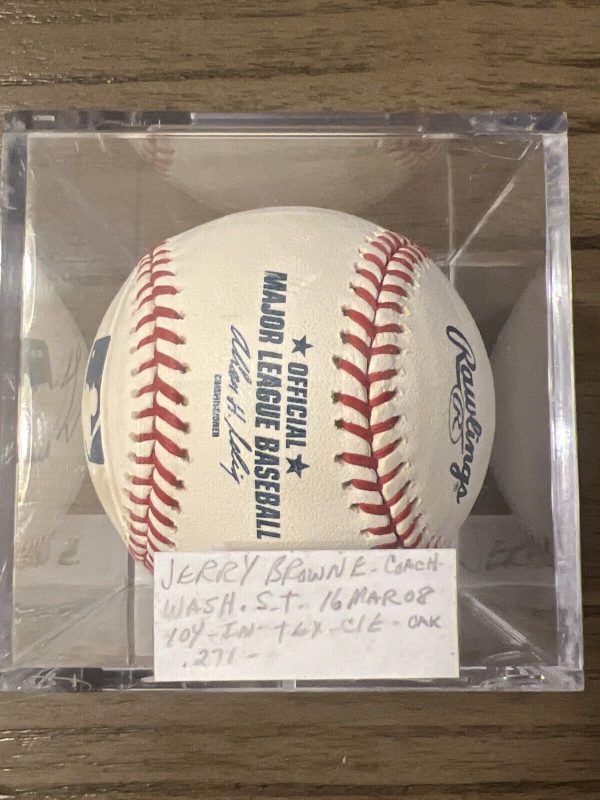 ★ OFFICIAL ★
MAJOR LEAGUE BASEBALL
Allan H. Selig
COMMISSIONER
Rawlings
R
JERRY BROWNE - COACH -
WASH. S.T. 16 MAR 08
10Y - IN - TEX - CLE - OAK
.271 -